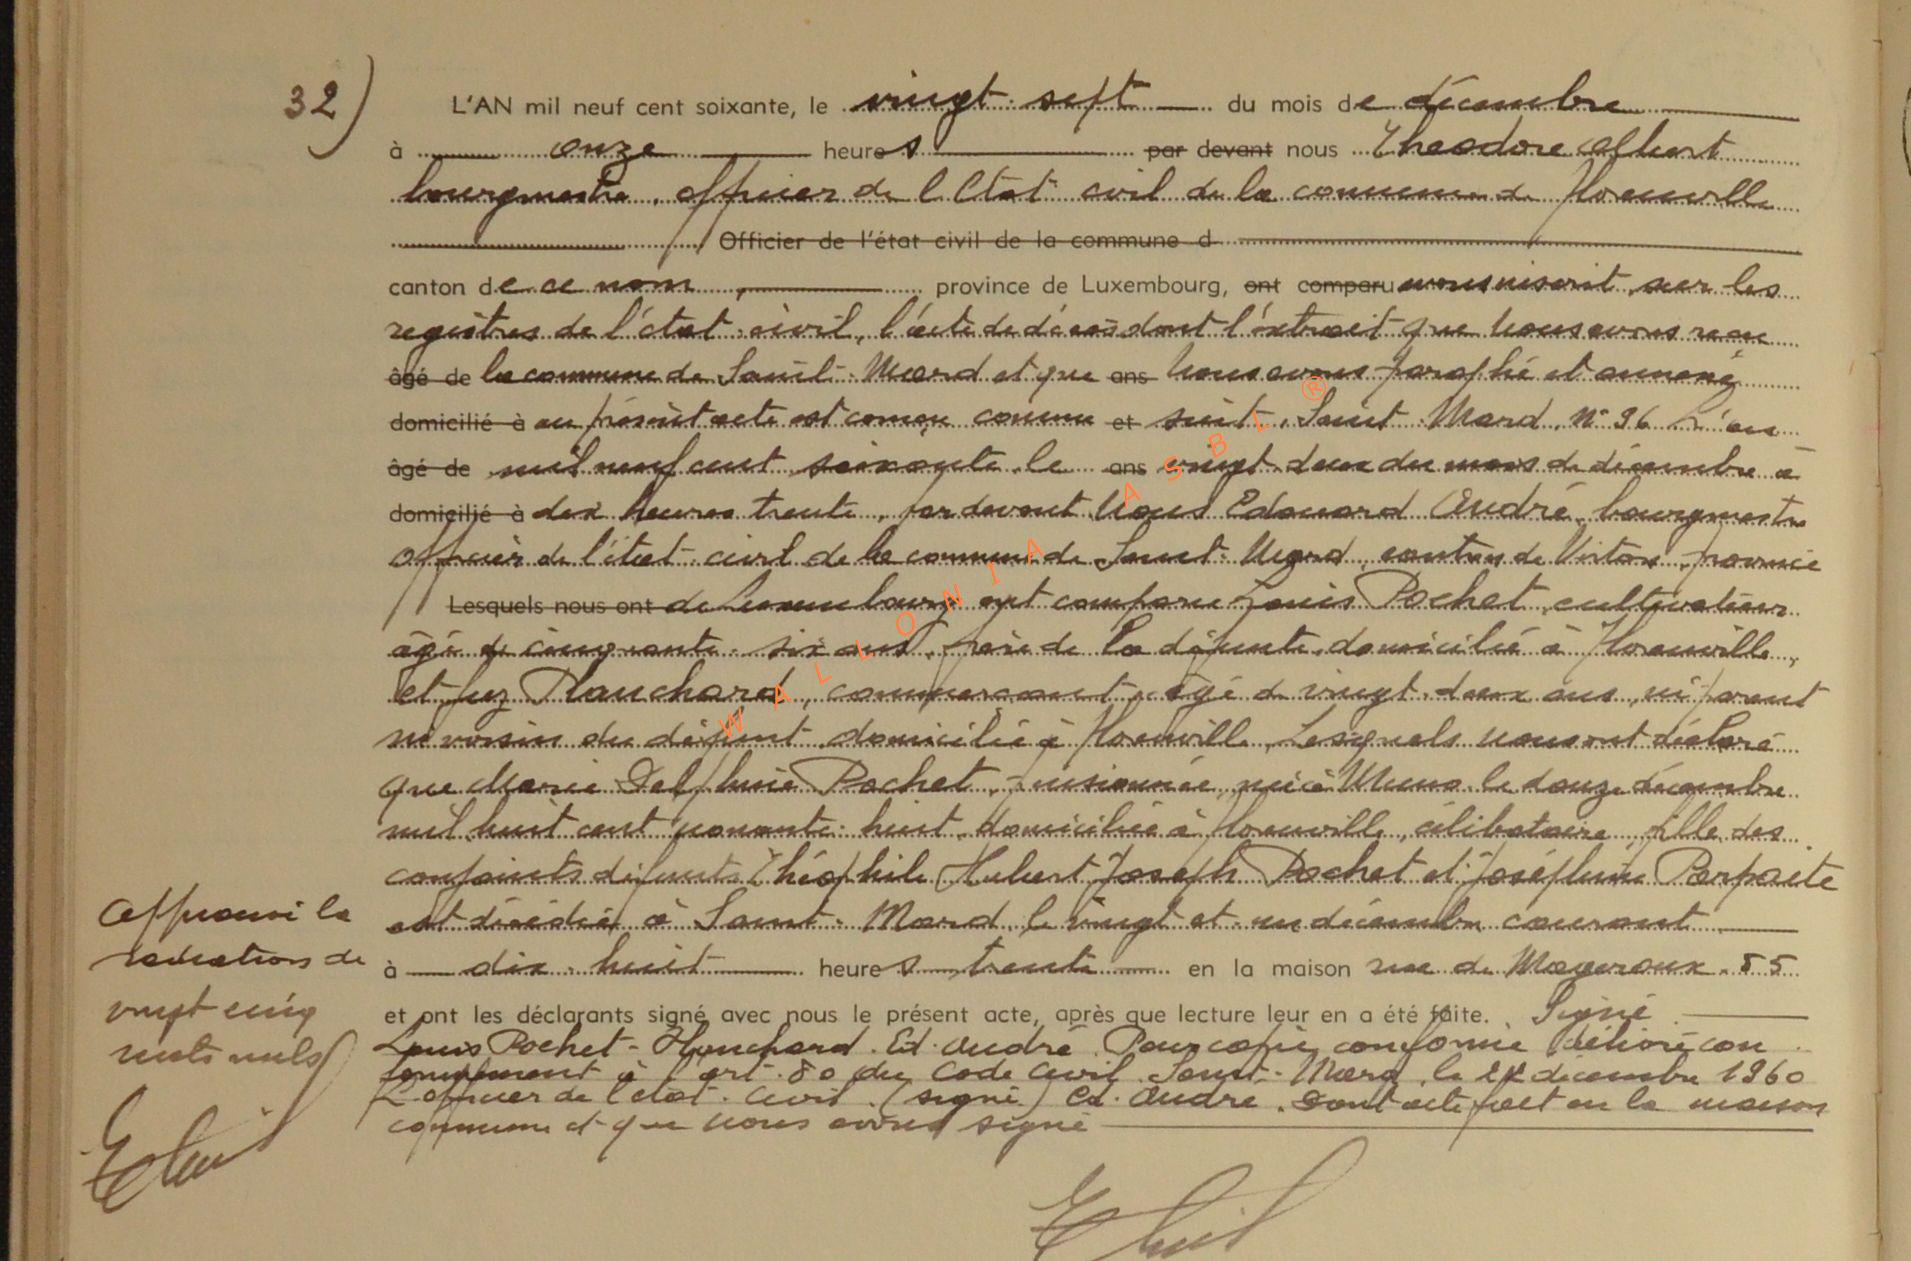 32) L'AN mil neuf cent soixante, le vingt sept du mois de décembre
à onze heures par devant nous Théodore Albert
bourgmestre, officier de l'Etat civil de la commune de Florenville
Officier de l'état civil de la commune d
canton de ce nom, province de Luxembourg, ont comparu avons inscrit sur les
registres de l'état-civil, l'acte de décès dont l'extrait que nous avons reçu
âgé de la commune de Saint-Mard et que ans nous avons paraphé et annexé
domicilié à au présent acte est conçu comme et suit. Saint-Mard. N° 96 L'an
âgé de mil neuf cent soixante le ans vingt-deux du mois de décembre à
domicilié à dix heures trente, par devant Nous Edouard André, bourgmestre
officier de l'état-civil de la commune de Saint-Mard, canton de Virton, province
Lesquels nous ont de Luxembourg ont comparu Louis Pochet, cultivateur
âgé de cinquante-six ans, de la défunte, domicilié à Florenville,
et Planchard, commerçant, âgé de vingt-deux ans, ni parent
ni voisin du défunt domicilié à Florenville, Lesquels nous ont déclaré
que Marie Delphine Pochet, pensionnée, née à Muno le douze décembre
mil huit cent nonante-huit, domiciliée à Florenville, célibataire, fille des
conjoints défunts Théophile Hubert Joseph Pochet et Joséphine Parfaite
est décédée à Saint-Mard le vingt et un décembre courant
à dix-huit heures trente en la maison rue de Mageroux. 55
et ont les déclarants signé avec nous le présent acte, après que lecture leur en a été faite. Signé
Louis Pochet - Planchard. Ed. André. Pour copie conforme délivré con
formément à l'art. 80 du Code Civil. Saint-Mard, le décembre 1960
L'officier de l'état-civil. (signé) Ed. André. Dont acte fait en la maison
commune et que nous avons signé
Approuvé la
radiation de
vingt cinq
mots nuls
WALLONIA ASBL ®